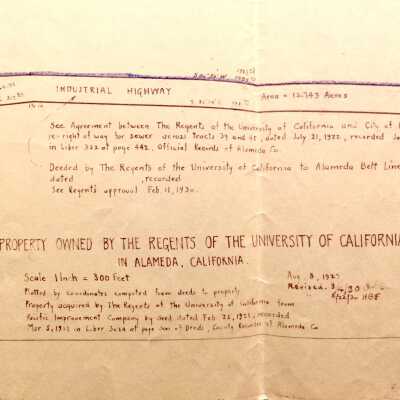 INDUSTRIAL HIGHWAY
Area = 12.743 Acres
See Agreement between The Regents of the University of California and City of
re-right of way for sewer across Tracts 39 and 41, dated July 21, 1922, recorded
in Liber 322 at page 442, Official Records of Alameda Co.
Deeded by The Regents of the University of California to Alameda Belt Line
dated , recorded
See Regents approval Feb. 11, 1930.
PROPERTY OWNED BY THE REGENTS OF THE UNIVERSITY OF CALIFORNIA
IN ALAMEDA, CALIFORNIA.
Scale 1 Inch = 300 Feet
Aug. 8, 1927
Plotted by coordinates computed from deeds to property.
Revised.
Property acquired by The Regents of the University of California from
Pacific Improvement Company by deed dated Feb. 25, 1921, recorded
Mar 5, 1921 in Liber 3024 at page of Deeds, County Recorder of Alameda Co